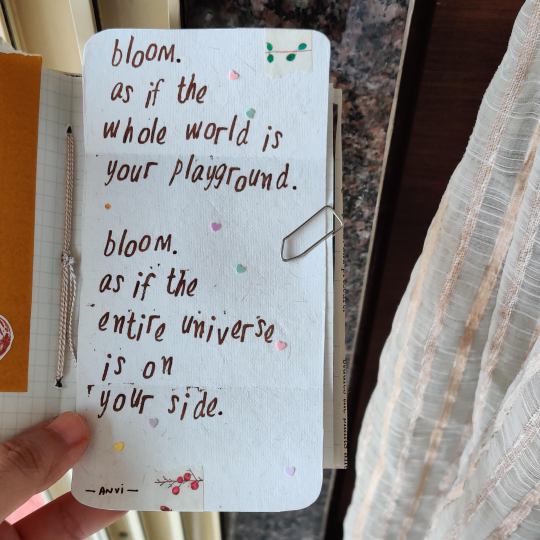 bloom.
as if the
whole world is
your playground.
bloom.
as if the
entire universe
is on
your side.
— ANVI —